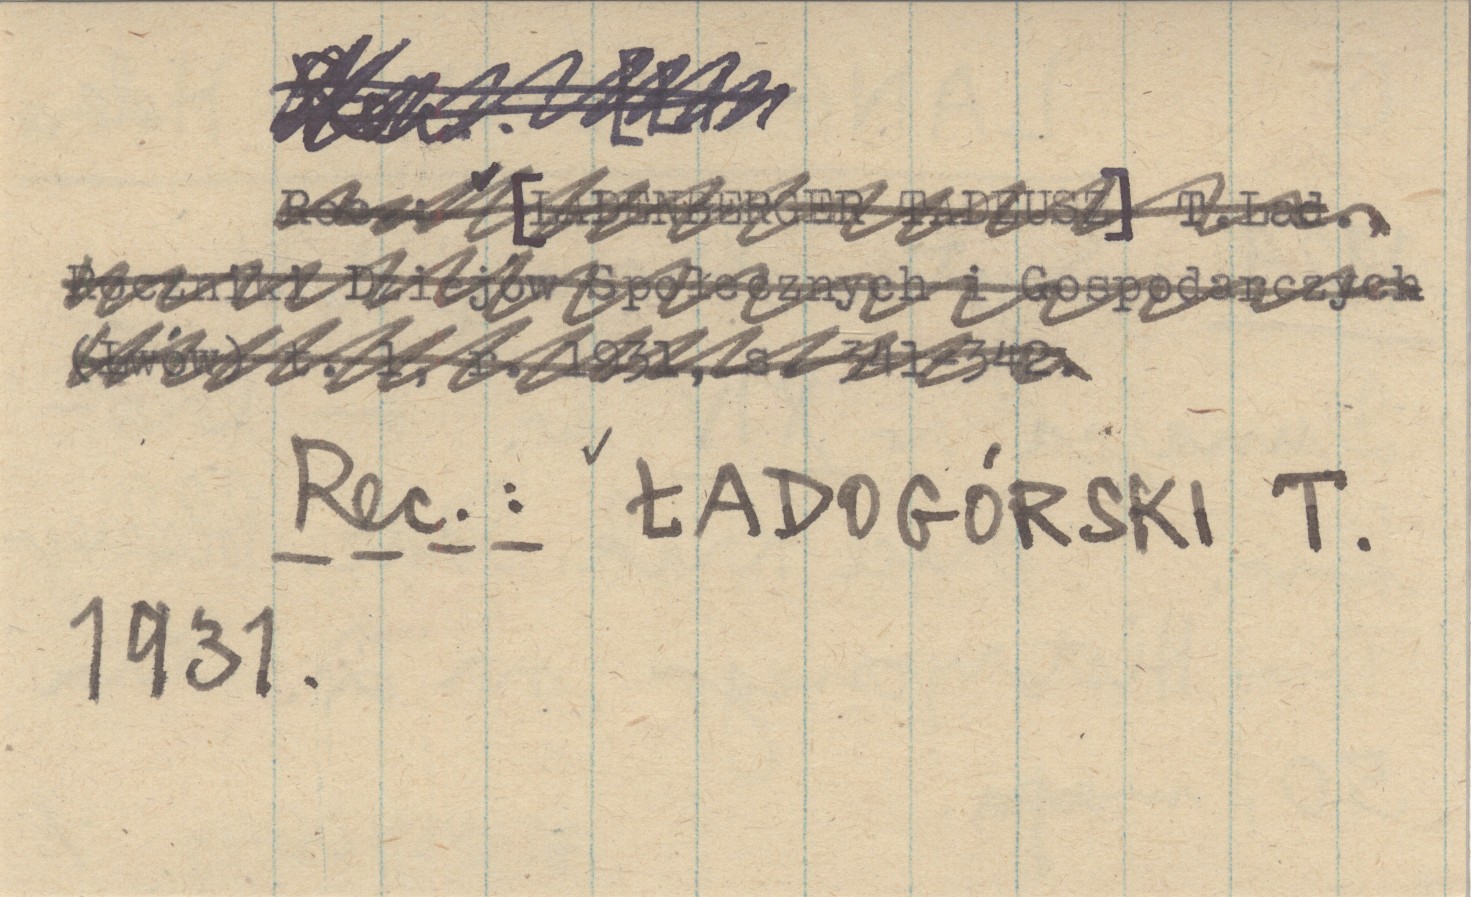 [LADENBERGER TADEUSZ] T.Lad.,
Roczniki Dziejów Społecznych i Gospodarczych
(Lwów) t. 1, r. 1931, s. 341-342.
Rec.: ŁADOGÓRSKI T.
1931.